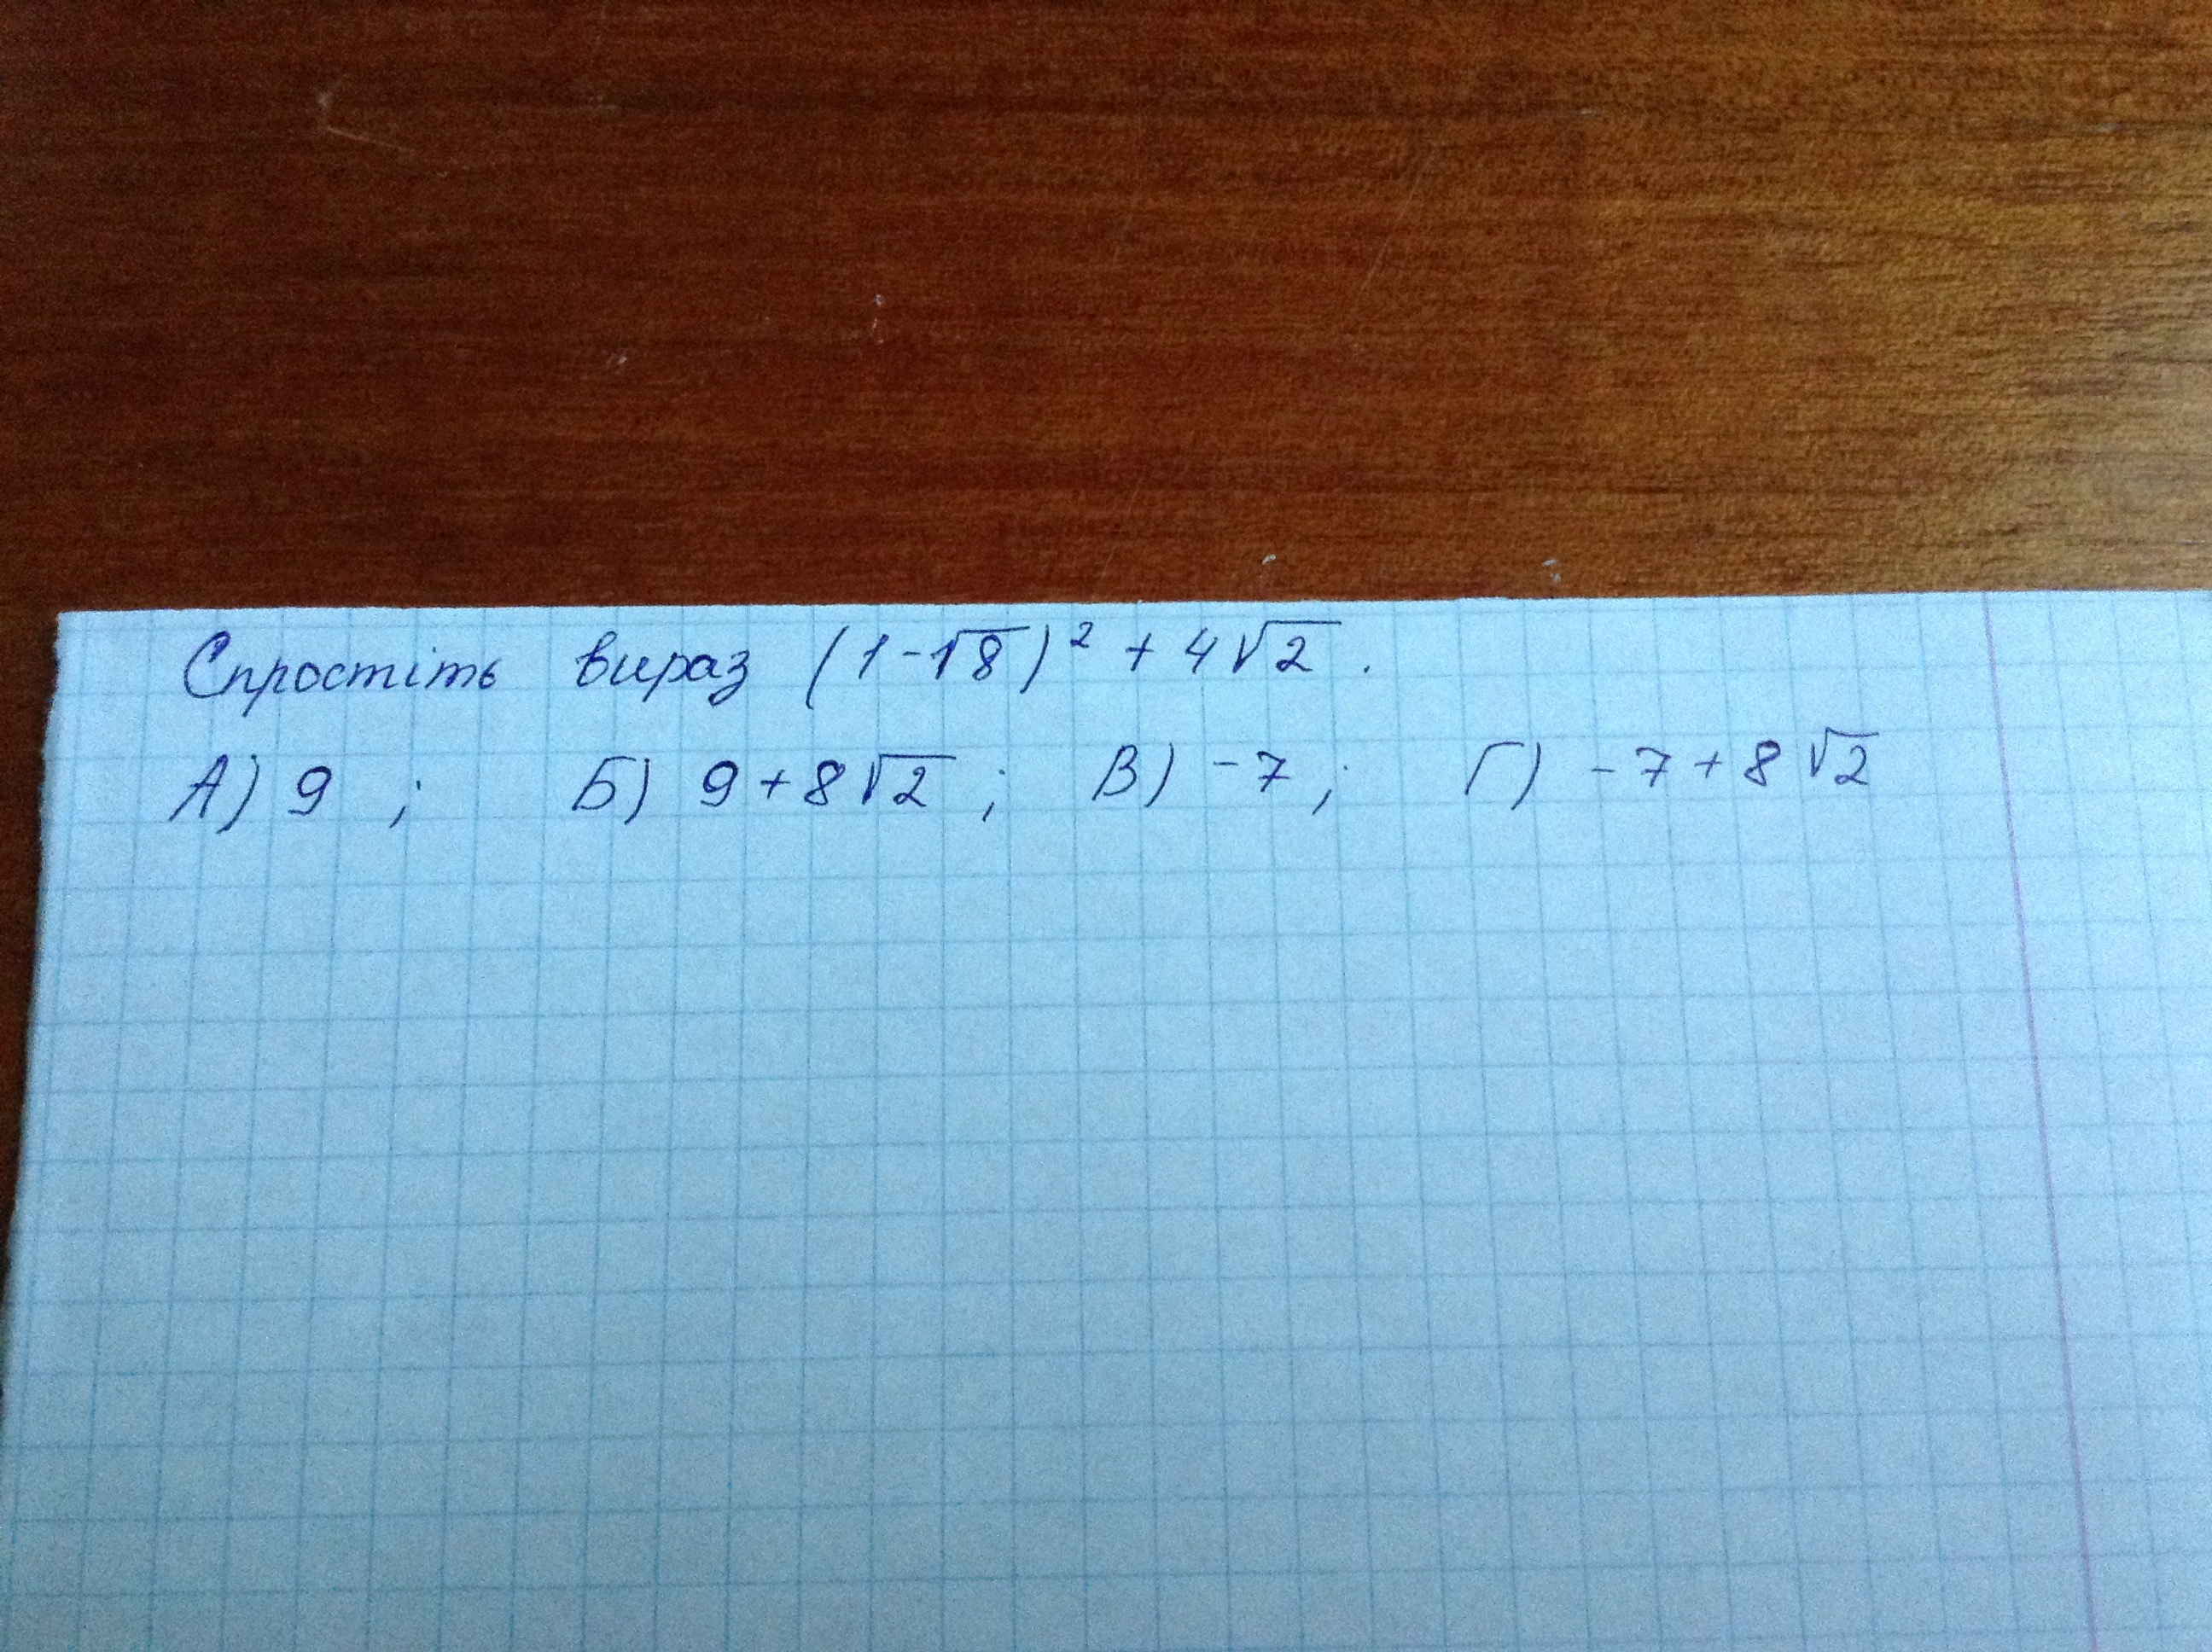 Спростіть вираз (1-√8)² + 4√2.
А) 9 ; Б) 9+8√2 ; В) -7 ; Г) -7+8√2